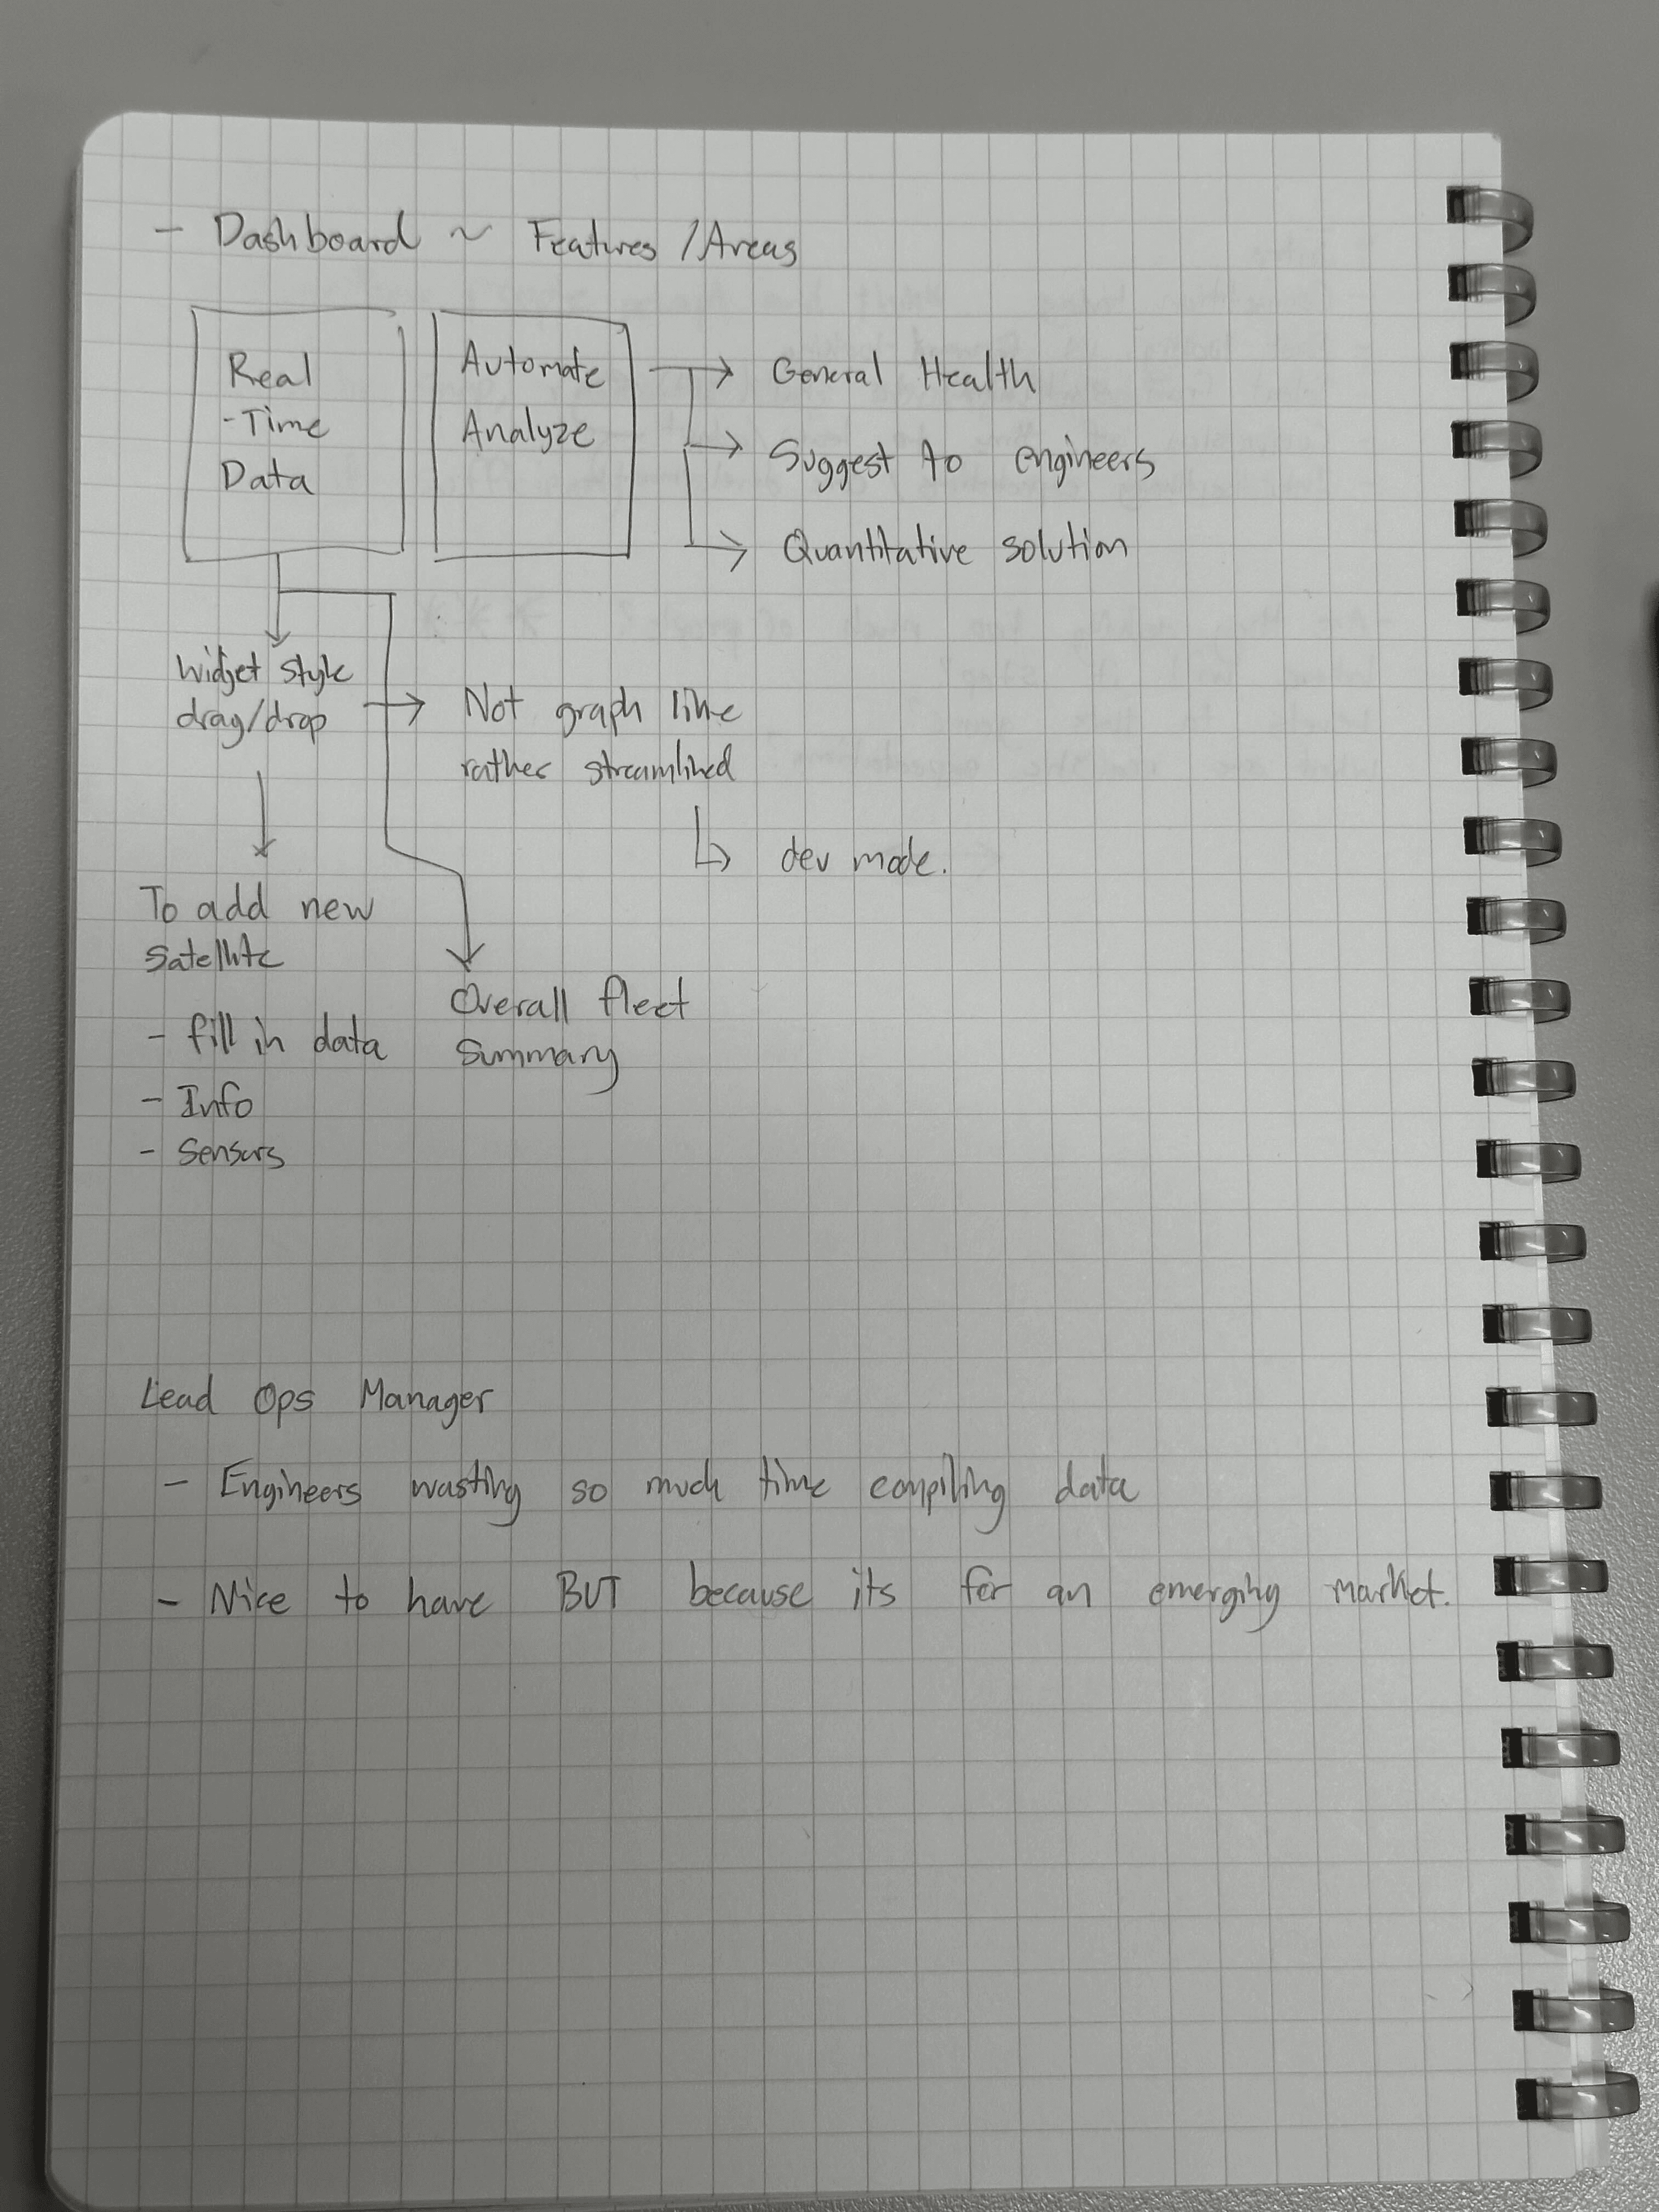 - Dashboard ~ Features / Areas
Real
-Time
Data
Automate
Analyze
→ General Health
→ Suggest to engineers
→ Quantitative solution
Widget style
drag/drop
→ Not graph like
rather streamlined
↳ dev mode.
To add new
Satellite
- fill in data
- Info
- Sensors
Overall fleet
Summary
Lead Ops Manager
- Engineers wasting so much time compiling data
- Nice to have BUT because its for an emerging market.